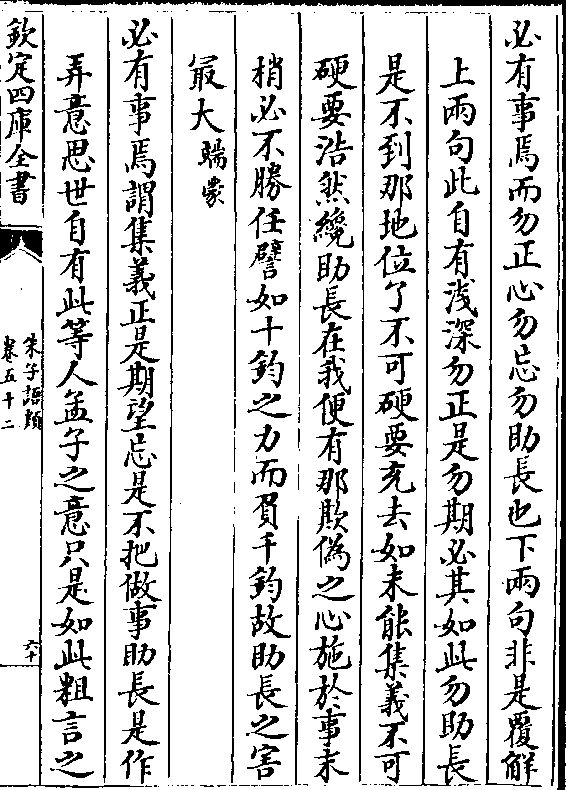 必有事焉而勿正心勿忘勿助長也下兩句非是覆解
上兩句此自有淺深勿正是勿期必其如此勿助長
是不到那地位了不可硬要充去如未能集義不可
硬要浩然纔助長在我便有那欺偽之心施於事末
梢必不勝任譬如十鈞之力而負千鈞故助長之害
最大端蒙
必有事焉謂集義正是期望忘是不把做事助長是作
弄意思世自有此等人孟子之意只是如此粗言之
欽定四庫全書
朱子語類
卷五十二
六十